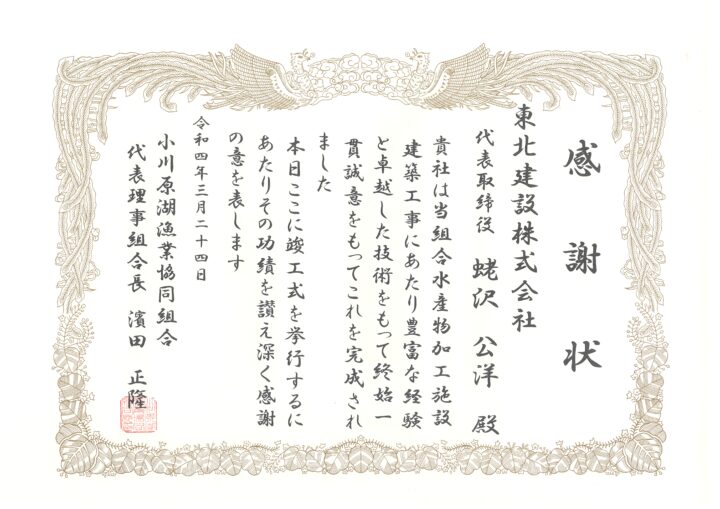 感謝状
東北建設株式会社
代表取締役 蛯沢 公洋 殿
貴社は当組合水産物加工施設
建築工事にあたり豊富な経験
と卓越した技術をもって終始一
貫誠意をもってこれを完成され
ました
本日ここに竣工式を挙行するに
あたりその功績を讃え深く感謝
の意を表します
令和四年三月二十四日
小川原湖漁業協同組合
代表理事組合長 濱田 正隆